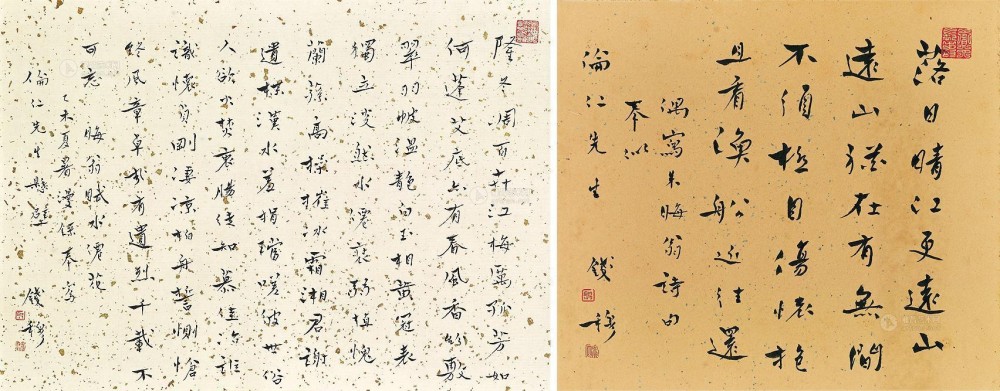 隆冬凋百卉江梅厲孤芳如
何蓬艾底亦有春風香紛敷
翠羽帔溫靘白玉相黃冠表
獨立淡然水僊裝弱植愧
蘭蓀高操摧冰霜湘君謝
遺褋漢水羞捐璫嗟彼世俗
人欲火焚衷腸徒知慕佳冶詎
識懷貞剛淒涼柏舟誓惻愴
終風章卓哉有遺烈千載不
可忘 晦翁賦水僊花
未夏暑
倫仁先生懸壁 錢穆
落日晴江更遠山
遠山猶在有無間
不須極目傷懷抱
且看漁船近往還
偶寫朱晦翁詩句
奉似
倫仁先生 錢穆